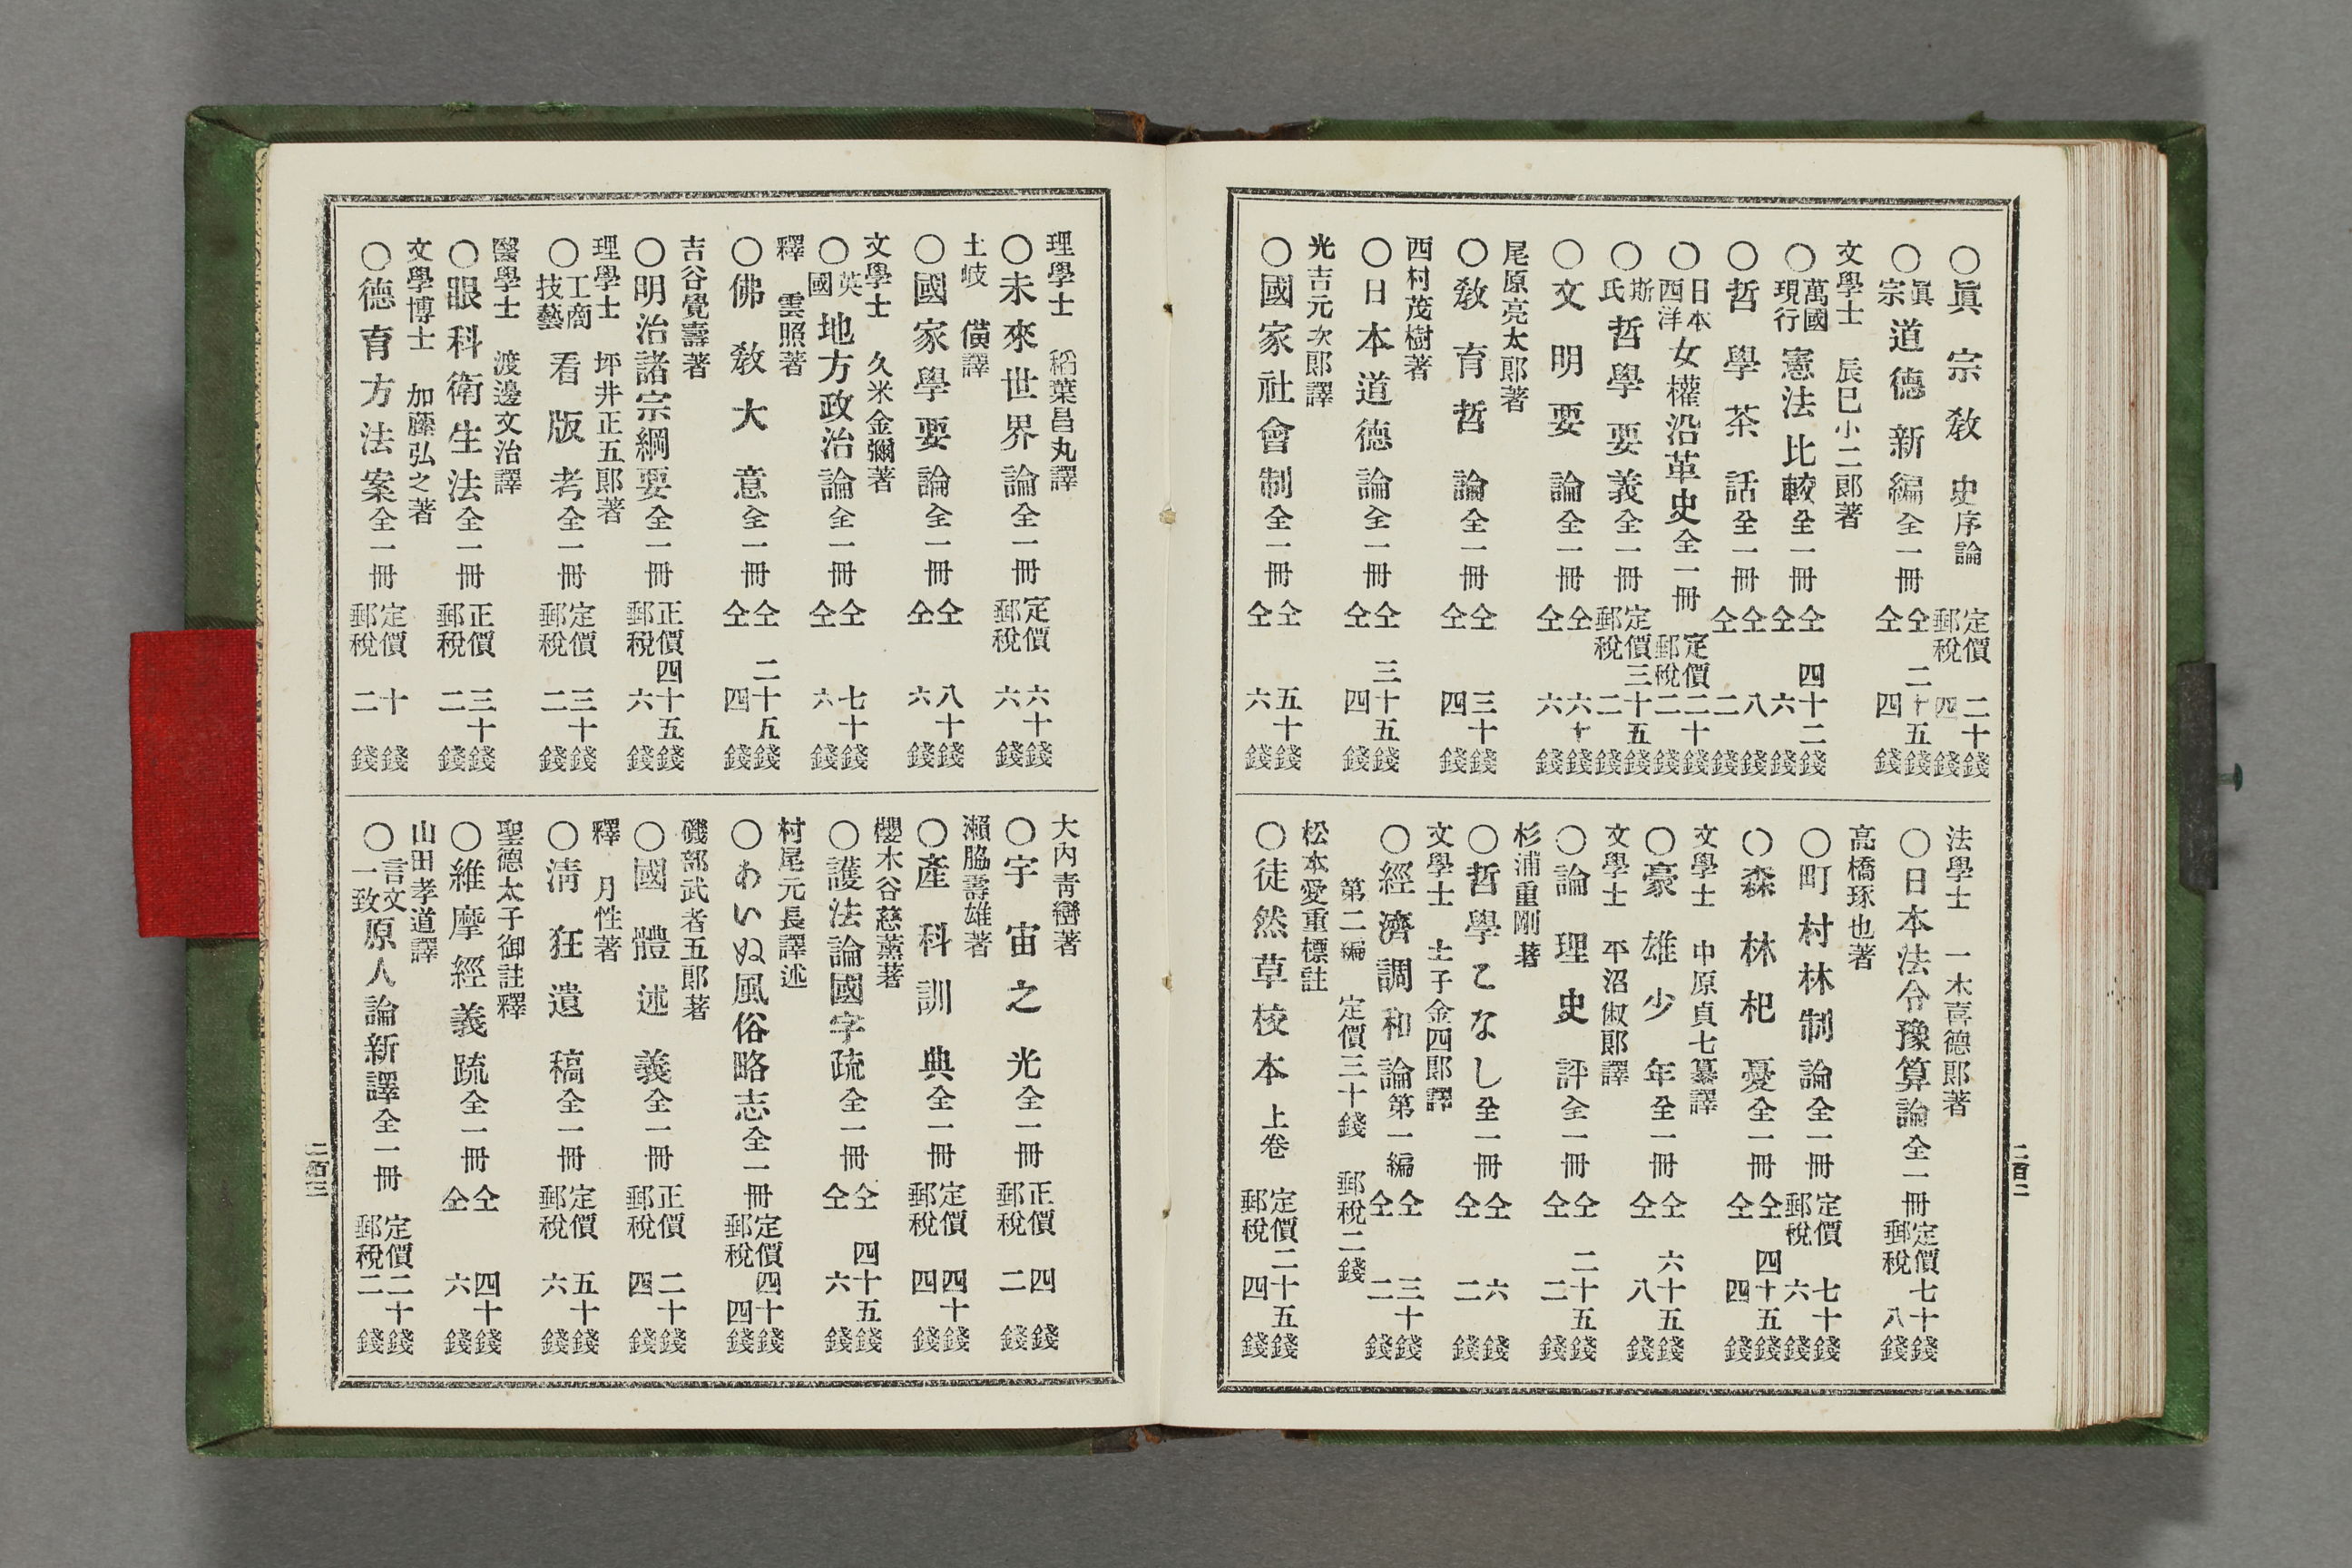 〇眞宗敎史序論 定價二十錢 郵稅四錢
〇眞宗道德新編全一冊 仝二十五錢 仝四錢
文學士 辰巳小二郎著
〇萬國現行憲法比較全一冊 仝四十二錢 仝六錢
〇哲學茶話全一冊 仝八錢 仝二錢
〇日本西洋女權沿革史全一冊 定價二十錢 郵稅二錢
〇斯氏哲學要義全一冊 定價三十五錢 郵稅二錢
〇文明要論全一冊 仝六十錢 仝六錢
尾原亮太郎著
〇敎育哲論全一冊 仝三十錢 仝四錢
西村茂樹著
〇日本道德論全一冊 仝三十五錢 仝四錢
光吉元次郎譯
〇國家社會制全一冊 仝五十錢 仝六錢
法學士 一木喜德郎著
〇日本法令豫算論全一冊 定價七十錢 郵稅八錢
高橋琢也著
〇町村林制論全一冊 定價七十錢 郵稅六錢
〇森林杞憂全一冊 仝四十五錢 仝四錢
文學士 中原貞七纂譯
〇豪雄少年全一冊 仝六十五錢 仝八錢
文學士 平沼俶郎譯
〇論理史評全一冊 仝二十五錢 仝二錢
杉浦重剛著
〇哲學こなし全一冊 仝六錢 仝二錢
文學士 土子金四郎譯
〇經濟調和論第一編 仝三十錢 仝二錢
第二編 定價三十錢 郵稅二錢
松本愛重標註
〇徒然草校本上卷 定價二十五錢 郵稅四錢
二百二
理學士 稻葉昌丸譯
〇未來世界論全一冊 定價六十錢 郵稅六錢
土岐 僙譯
〇國家學要論全一冊 仝八十錢 仝六錢
文學士 久米金彌著
〇英國地方政治論全一冊 仝七十錢 仝六錢
釋 雲照著
〇佛敎大意全一冊 仝二十五錢 仝四錢
吉谷覺壽著
〇明治諸宗綱要全一冊 正價四十五錢 郵稅六錢
理學士 坪井正五郎著
〇工商技藝看版考全一冊 定價三十錢 郵稅二錢
醫學士 渡邊文治譯
〇眼科衛生法全一冊 正價三十錢 郵稅二錢
文學博士 加藤弘之著
〇德育方法案全一冊 定價十錢 郵稅二錢
大內靑巒著
〇宇宙之光全一冊 正價四錢 郵稅二錢
瀨脇壽雄著
〇產科訓典全一冊 定價四十錢 郵稅四錢
櫻木谷慈薰著
〇護法論國字疏全一冊 仝四十五錢 仝六錢
村尾元長譯述
〇あいぬ風俗略志全一冊 定價四十錢 郵稅四錢
磯部武者五郎著
〇國體述義全一冊 正價二十錢 郵稅四錢
釋 月性著
〇淸狂遺稿全一冊 定價五十錢 郵稅六錢
聖德太子御註釋
〇維摩經義疏全一冊 仝四十錢 仝六錢
山田孝道譯
〇言文一致原人論新譯全一冊 定價二十錢 郵稅二錢
二百三